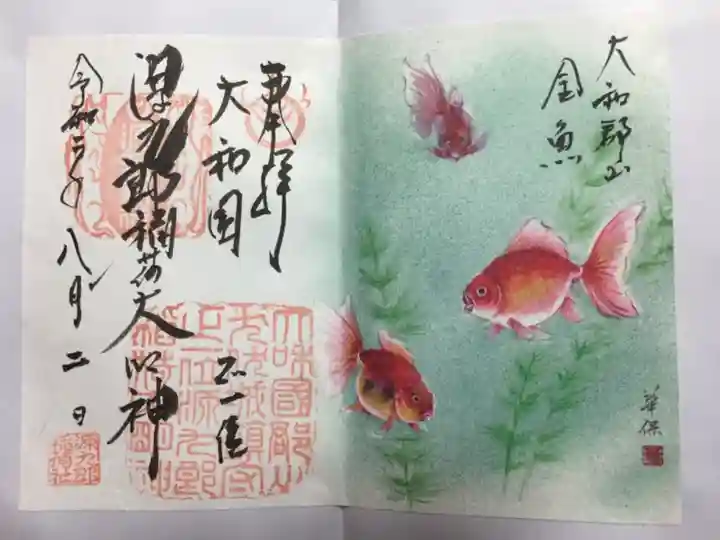 大和郡山
金魚
華保
奉拝
大和国
正一位
源九郎稲荷大明神
令和二年八月二日